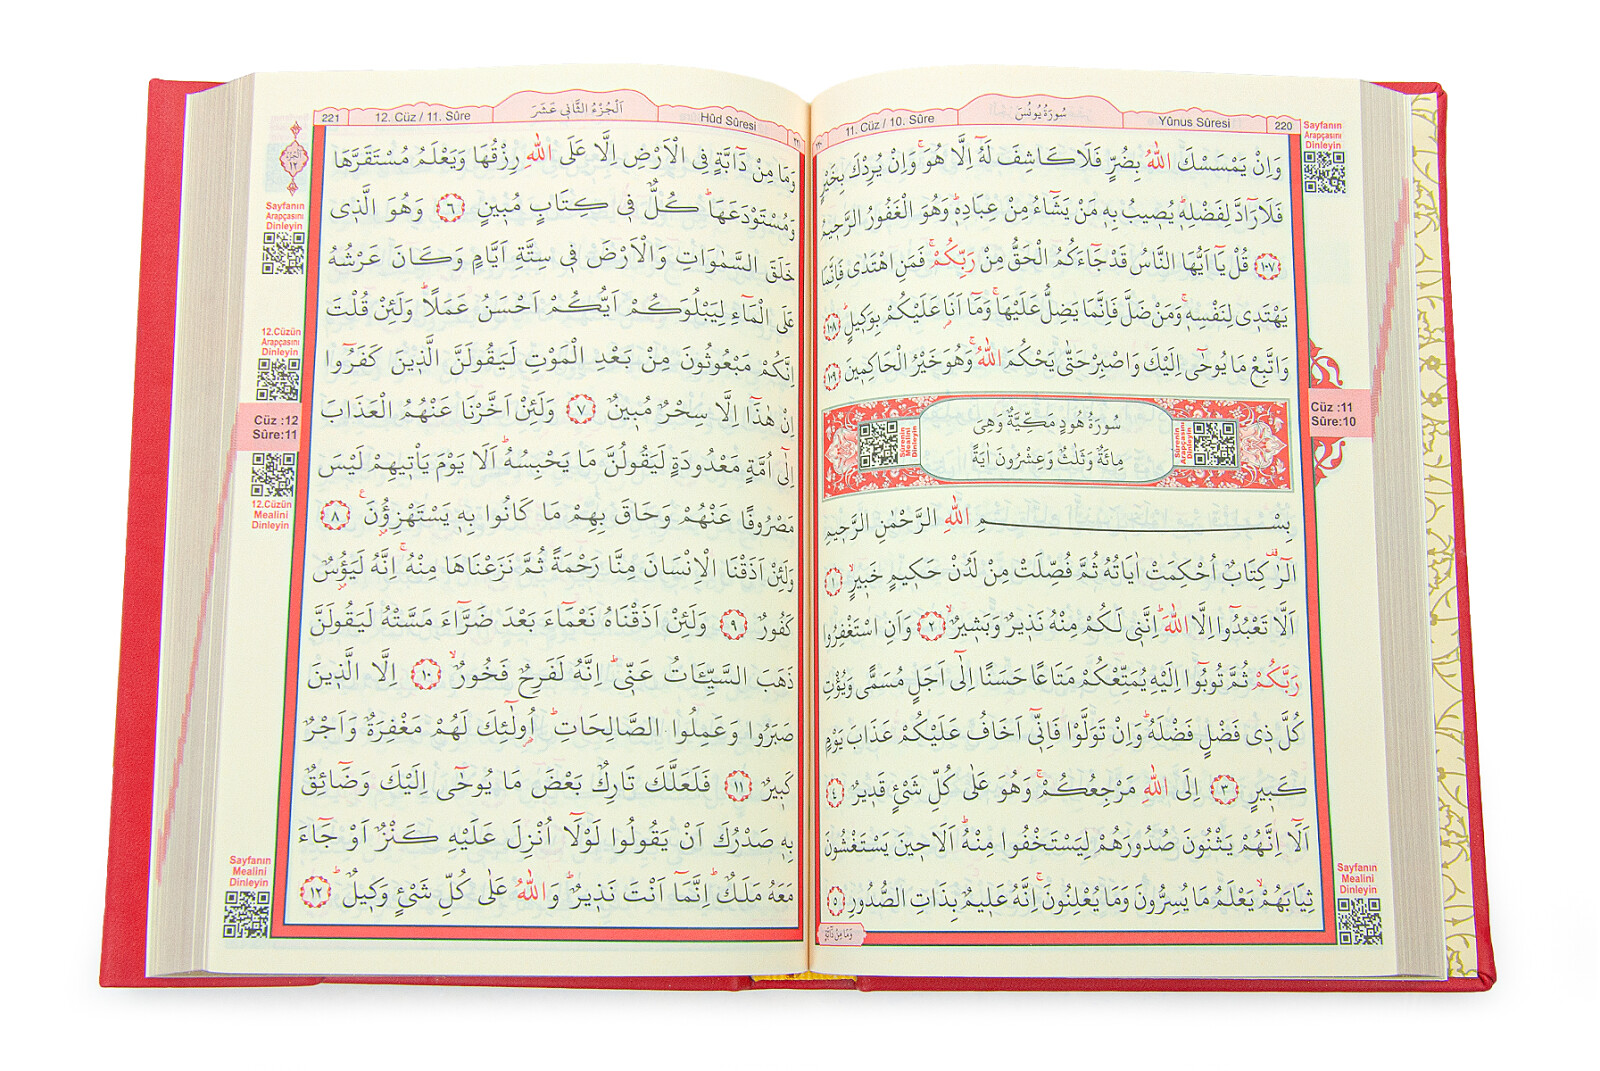 220
Yûnus Sûresi
سُورَةُ يُونُسَ
11. Cüz / 10. Sûre
Sayfanın
Arapçasını
Dinleyin
وَاِنْ يَمْسَسْكَ اللّٰهُ بِضُرٍّ فَلَا كَاشِفَ لَهُٓ اِلَّا هُوَۚ وَاِنْ يُرِدْكَ بِخَيْرٍ
فَلَا رَٓادَّ لِفَضْلِه۪ۜ يُص۪يبُ بِه۪ مَنْ يَشَٓاءُ مِنْ عِبَادِه۪ۜ وَهُوَ الْغَفُورُ الرَّح۪يمُ
﴿١٠٧﴾ قُلْ يَٓا اَيُّهَا النَّاسُ قَدْ جَٓاءَكُمُ الْحَقُّ مِنْ رَبِّكُمْۚ فَمَنِ اهْتَدٰى فَاِنَّمَا
يَهْتَد۪ي لِنَفْسِه۪ۚ وَمَنْ ضَلَّ فَاِنَّمَا يَضِلُّ عَلَيْهَاۚ وَمَٓا اَنَا۬ عَلَيْكُمْ بِوَك۪يلٍۜ ﴿١٠٨﴾
وَاتَّبِعْ مَا يُوحٰٓى اِلَيْكَ وَاصْبِرْ حَتّٰى يَحْكُمَ اللّٰهُۚ وَهُوَ خَيْرُ الْحَاكِم۪ينَ ﴿١٠٩﴾
Cüz :11
Sûre:10
سُورَةُ هُودٍ مَكِّيَّةٌ وَهِيَ
مِائَةٌ وَثَلٰثٌ وَعِشْرُونَ اٰيَةً
Sûrenin
Arapçasını
Dinleyin
Sûrenin
Mealini
Dinleyin
بِسْمِ اللّٰهِ الرَّحْمٰنِ الرَّح۪يمِ
الٓرٰ۠ كِتَابٌ اُحْكِمَتْ اٰيَاتُهُ ثُمَّ فُصِّلَتْ مِنْ لَدُنْ حَك۪يمٍ خَب۪يرٍۙ ﴿١﴾
اَلَّا تَعْبُدُٓوا اِلَّا اللّٰهَۜ اِنَّن۪ي لَكُمْ مِنْهُ نَذ۪يرٌ وَبَش۪يرٌۙ ﴿٢﴾ وَاَنِ اسْتَغْفِرُوا
رَبَّكُمْ ثُمَّ تُوبُٓوا اِلَيْهِ يُمَتِّعْكُمْ مَتَاعًا حَسَنًا اِلٰٓى اَجَلٍ مُسَمًّى وَيُؤْتِ
كُلَّ ذ۪ي فَضْلٍ فَضْلَهُۜ وَاِنْ تَوَلَّوْا فَاِنّ۪ٓي اَخَافُ عَلَيْكُمْ عَذَابَ يَوْمٍ
كَب۪يرٍ ﴿٣﴾ اِلَى اللّٰهِ مَرْجِعُكُمْۚ وَهُوَ عَلٰى كُلِّ شَيْءٍ قَد۪يرٌ ﴿٤﴾
اَلَٓا اِنَّهُمْ يَثْنُونَ صُدُورَهُمْ لِيَسْتَخْفُوا مِنْهُۜ اَلَا ح۪ينَ يَسْتَغْشُونَ
ثِيَابَهُمْۙ يَعْلَمُ مَا يُسِرُّونَ وَمَا يُعْلِنُونَۚ اِنَّهُ عَل۪يمٌ بِذَاتِ الصُّدُورِ ﴿٥﴾
Sayfanın
Mealini
Dinleyin
وَمَا مِنْ دَٓابَّةٍ
Hûd Sûresi
اَلْجُزْءُ الثَّانِي عَشَرَ
12. Cüz / 11. Sûre
221
وَمَا مِنْ دَٓابَّةٍ فِي الْاَرْضِ اِلَّا عَلَى اللّٰهِ رِزْقُهَا وَيَعْلَمُ مُسْتَقَرَّهَا
وَمُسْتَوْدَعَهَاۜ كُلٌّ ف۪ي كِتَابٍ مُب۪ينٍ ﴿٦﴾ وَهُوَ الَّذ۪ي
خَلَقَ السَّمٰوَاتِ وَالْاَرْضَ ف۪ي سِتَّةِ اَيَّامٍ وَكَانَ عَرْشُهُ
عَلَى الْمَٓاءِ لِيَبْلُوَكُمْ اَيُّكُمْ اَحْسَنُ عَمَلًاۜ وَلَئِنْ قُلْتَ
اِنَّكُمْ مَبْعُوثُونَ مِنْ بَعْدِ الْمَوْتِ لَيَقُولَنَّ الَّذ۪ينَ كَفَرُٓوا
اِنْ هٰذَٓا اِلَّا سِحْرٌ مُب۪ينٌ ﴿٧﴾ وَلَئِنْ اَخَّرْنَا عَنْهُمُ الْعَذَابَ
اِلٰٓى اُمَّةٍ مَعْدُودَةٍ لَيَقُولُنَّ مَا يَحْبِسُهُۜ اَلَا يَوْمَ يَأْت۪يهِمْ لَيْسَ
مَصْرُوفًا عَنْهُمْ وَحَاقَ بِهِمْ مَا كَانُوا بِه۪ يَسْتَهْزِؤُ۫نَ۟ ﴿٨﴾
وَلَئِنْ اَذَقْنَا الْاِنْسَانَ مِنَّا رَحْمَةً ثُمَّ نَزَعْنَاهَا مِنْهُۚ اِنَّهُ لَيَؤُ۫سٌ
كَفُورٌ ﴿٩﴾ وَلَئِنْ اَذَقْنَاهُ نَعْمَٓاءَ بَعْدَ ضَرَّٓاءَ مَسَّتْهُ لَيَقُولَنَّ
ذَهَبَ السَّيِّـَٔاتُ عَنّ۪يۜ اِنَّهُ لَفَرِحٌ فَخُورٌۙ ﴿١٠﴾ اِلَّا الَّذ۪ينَ
صَبَرُوا وَعَمِلُوا الصَّالِحَاتِۜ اُو۬لٰٓئِكَ لَهُمْ مَغْفِرَةٌ وَاَجْرٌ
كَب۪يرٌ ﴿١١﴾ فَلَعَلَّكَ تَارِكٌ بَعْضَ مَا يُوحٰٓى اِلَيْكَ وَضَٓائِقٌ
بِه۪ صَدْرُكَ اَنْ يَقُولُوا لَوْلَٓا اُنْزِلَ عَلَيْهِ كَنْزٌ اَوْ جَٓاءَ
مَعَهُ مَلَكٌۜ اِنَّمَٓا اَنْتَ نَذ۪يرٌۜ وَاللّٰهُ عَلٰى كُلِّ شَيْءٍ وَك۪يلٌۜ ﴿١٢﴾
Sayfanın
Arapçasını
Dinleyin
12.Cüzün
Arapçasını
Dinleyin
Cüz :12
Sûre:11
12.Cüzün
Mealini
Dinleyin
Sayfanın
Mealini
Dinleyin